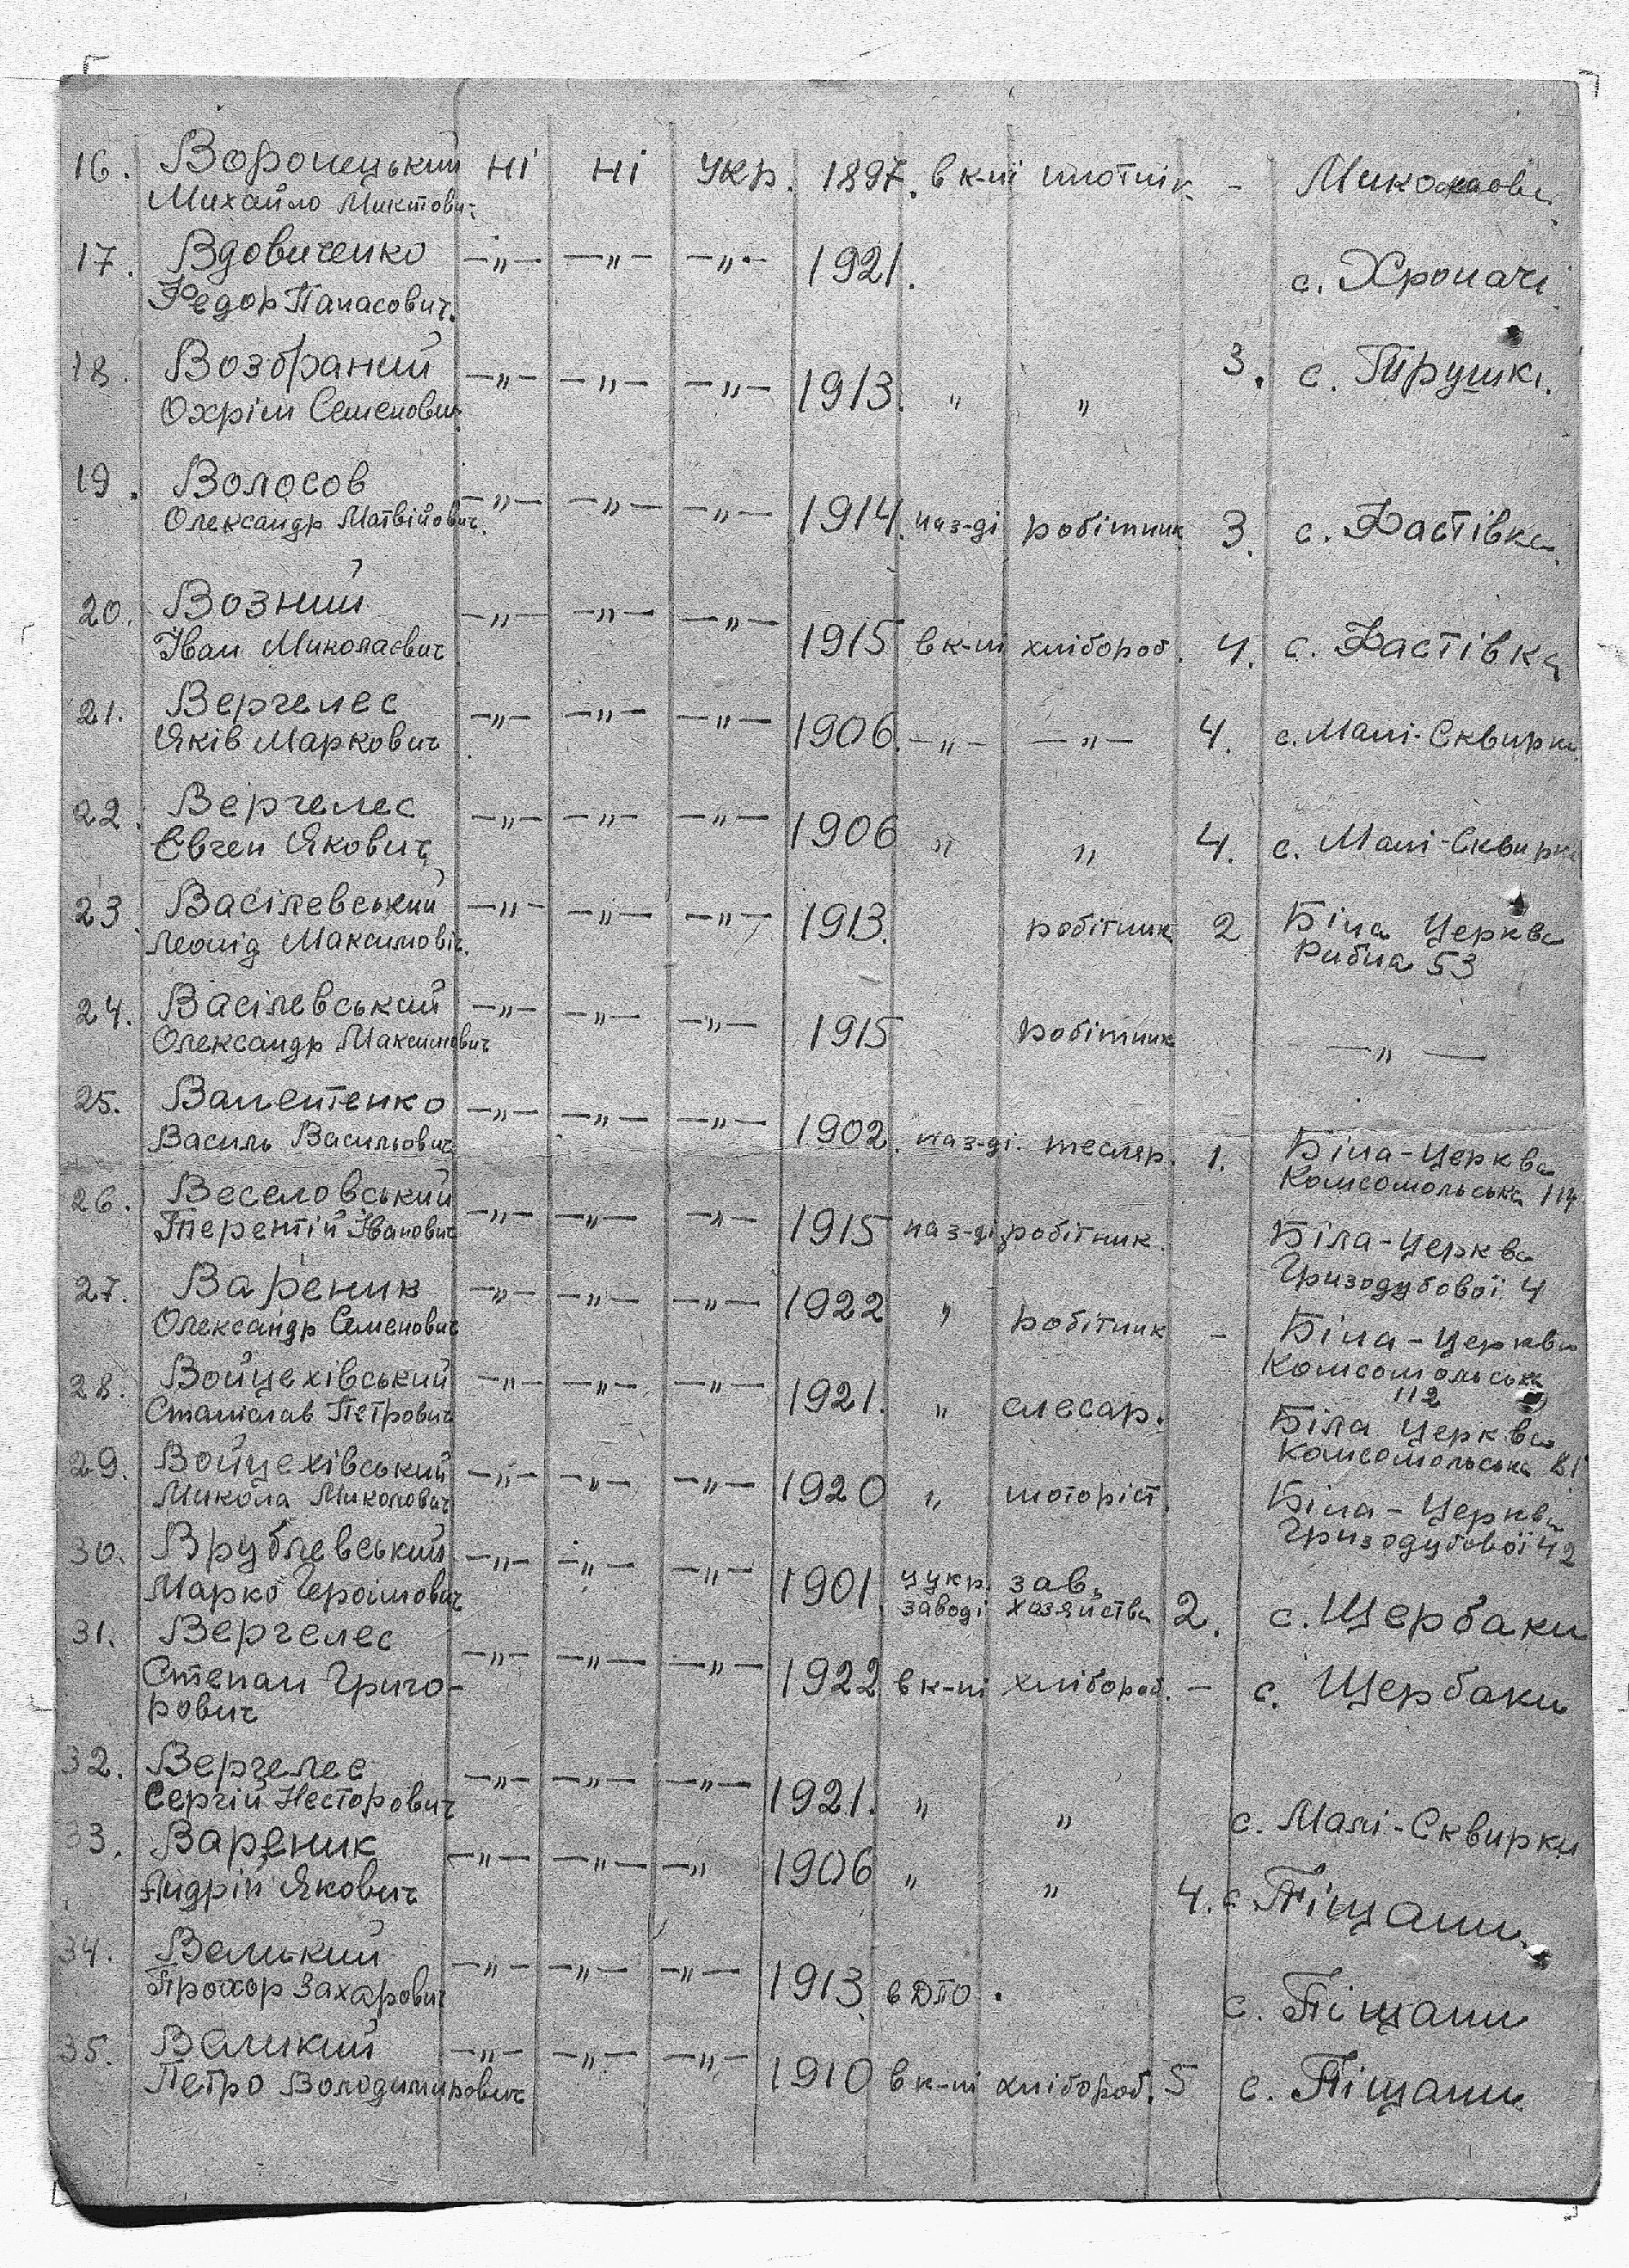 16. Воронецький ні ні укр. 1897. в к-пі плотнік -
Михайло
17. Вдовиченко —„— —„— —„— 1921. с. Хропачі
Федор Панасович.
18. Возбраний —„— —„— —„— 1913. „ „ 3. с. Трушкі.
Охрім Семенович
19. Волосов —„— —„— —„— 1914. на з-ді робітник 3. с. Фастівка
Олександр Матвійович.
20. Возний —„— —„— —„— 1915 в к-пі хлібороб. 4. с. Фастівка
Іван Миколаєвич
21. Вергелес —„— —„— —„— 1906. —„— —„— 4. с. Малі-Сквирки
Яків Маркович
22. Вергелес —„— —„— —„— 1906 „ „ 4. с. Малі-Сквирки
Євген Якович
23. Васілевський —„— —„— —„— 1913. робітник 2 Біла Церква
Леонід Максимовіч. Рибна 53
24. Васілевський —„— —„— —„— 1915 робітник —„—
Олександр Максимович
25. Валентенко —„— —„— —„— 1902. на з-ді. тесляр. 1. Біла-Церква
Василь Васильович Комсомольська
26. Веселовський —„— —„— —„— 1915 на з-ді робітник. Біла-Церква
Терентій Іванович Гризодубової 4
27. Вареник —„— —„— —„— 1922 „ робітник - Біла-Церква
Олександр Семенович Комсомольська
112
28. Войцехівський —„— —„— —„— 1921. „ слесар. Біла Церква
Станіслав Петрович Комсомольська 81
29. Войцехівський —„— —„— —„— 1920 „ моторіст. Біла-Церква
Микола Миколович Гризодубової 42
30. Врублевський —„— —„— —„— 1901. цукр. зав. 2. с. Щербаки
Марко заводі хазяйства
31. Вергелес —„— —„— —„— 1922 в к-пі хлібороб. - с. Щербаки
Степан Григо-
рович
32. Вергелес —„— —„— —„— 1921. „ „ с. Малі-Сквирки
Сергій Несторович
33. Вареник —„— —„— —„ 1906 „ „ 4. с Піщани
Андрій Якович
34. Великий —„— —„— —„— 1913. в ДПО . с. Піщани
Прохор Захарович
35. Великий —„— —„— —„— 1910 в к-пі хлібороб. 5 с. Піщани
Петро Володимирович